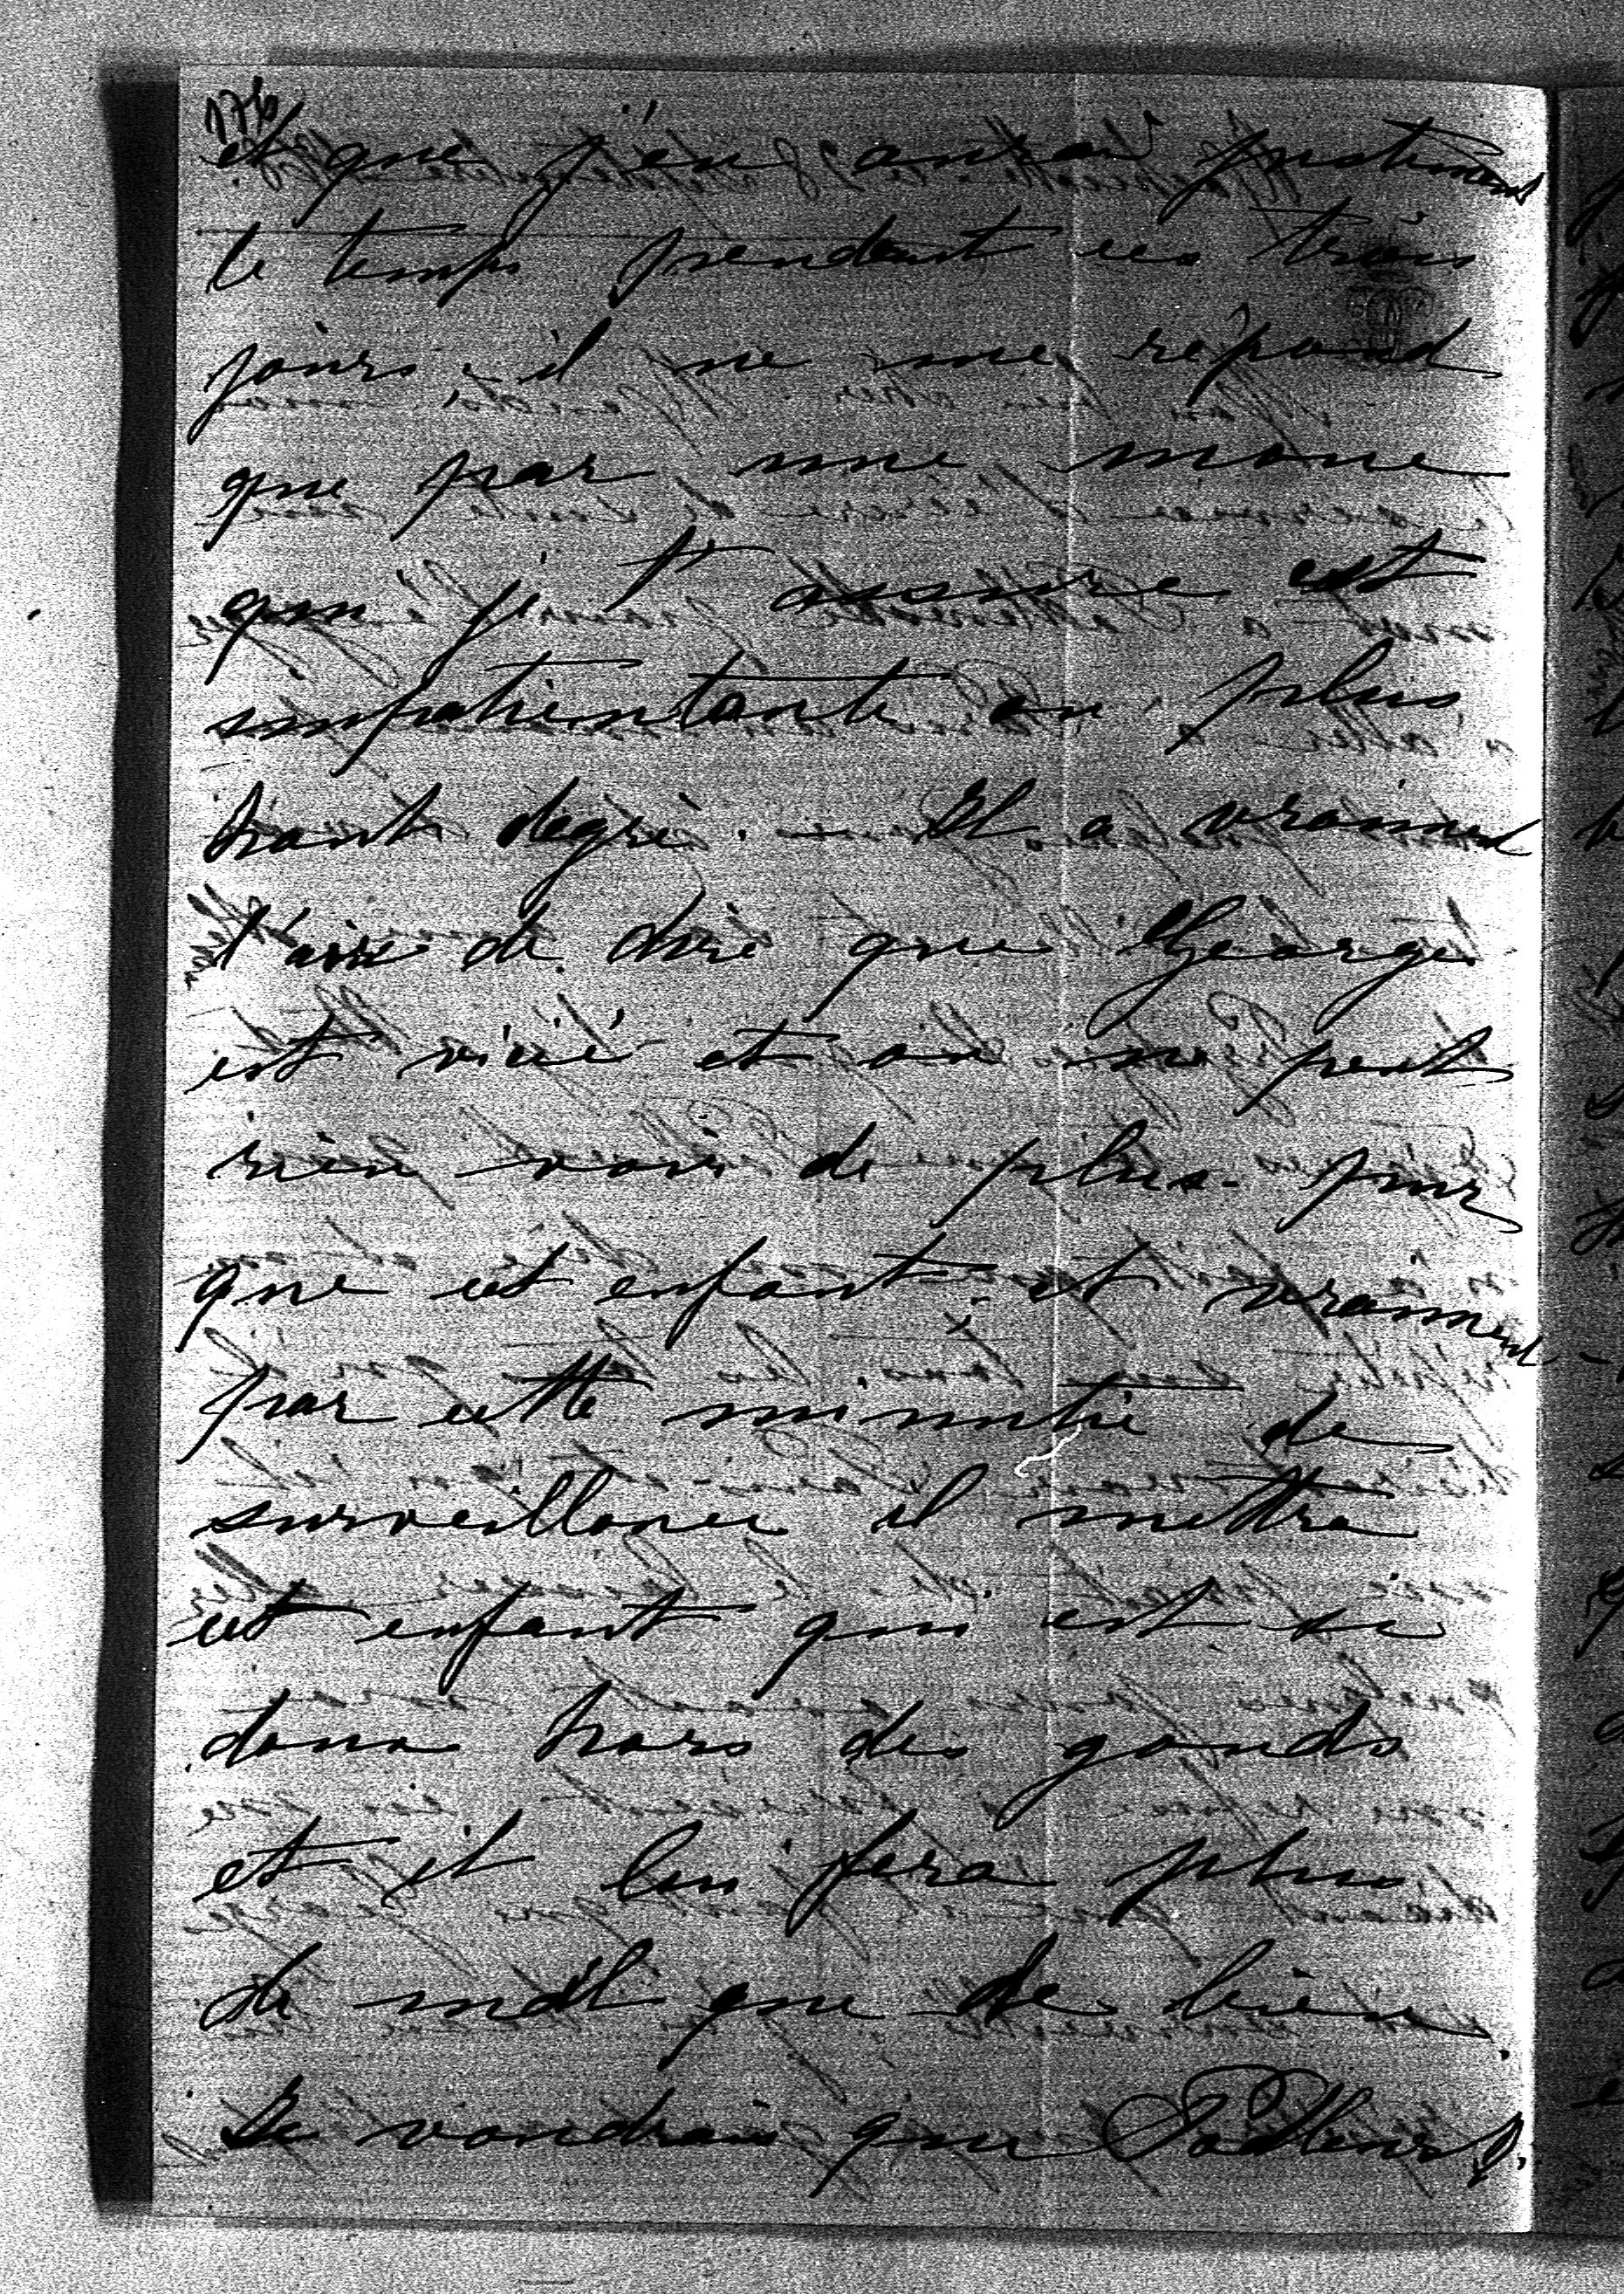 176
et que j'en aurai justement
le temps pendant ces trois
jours - il ne me répond
que par une moue
qui je t'assure est
impatientante au plus
haut degré. - Il a vraiment
l'aire de dire que George
est vicié et on ne peut
rien voir de plus pur
que cet enfant - et vraiment
par cette minutie de
surveillance il mettra
cet enfant qui est si
doux hors des gonds
et il lui fera plus
de mal que de bien.
Je voudrais que